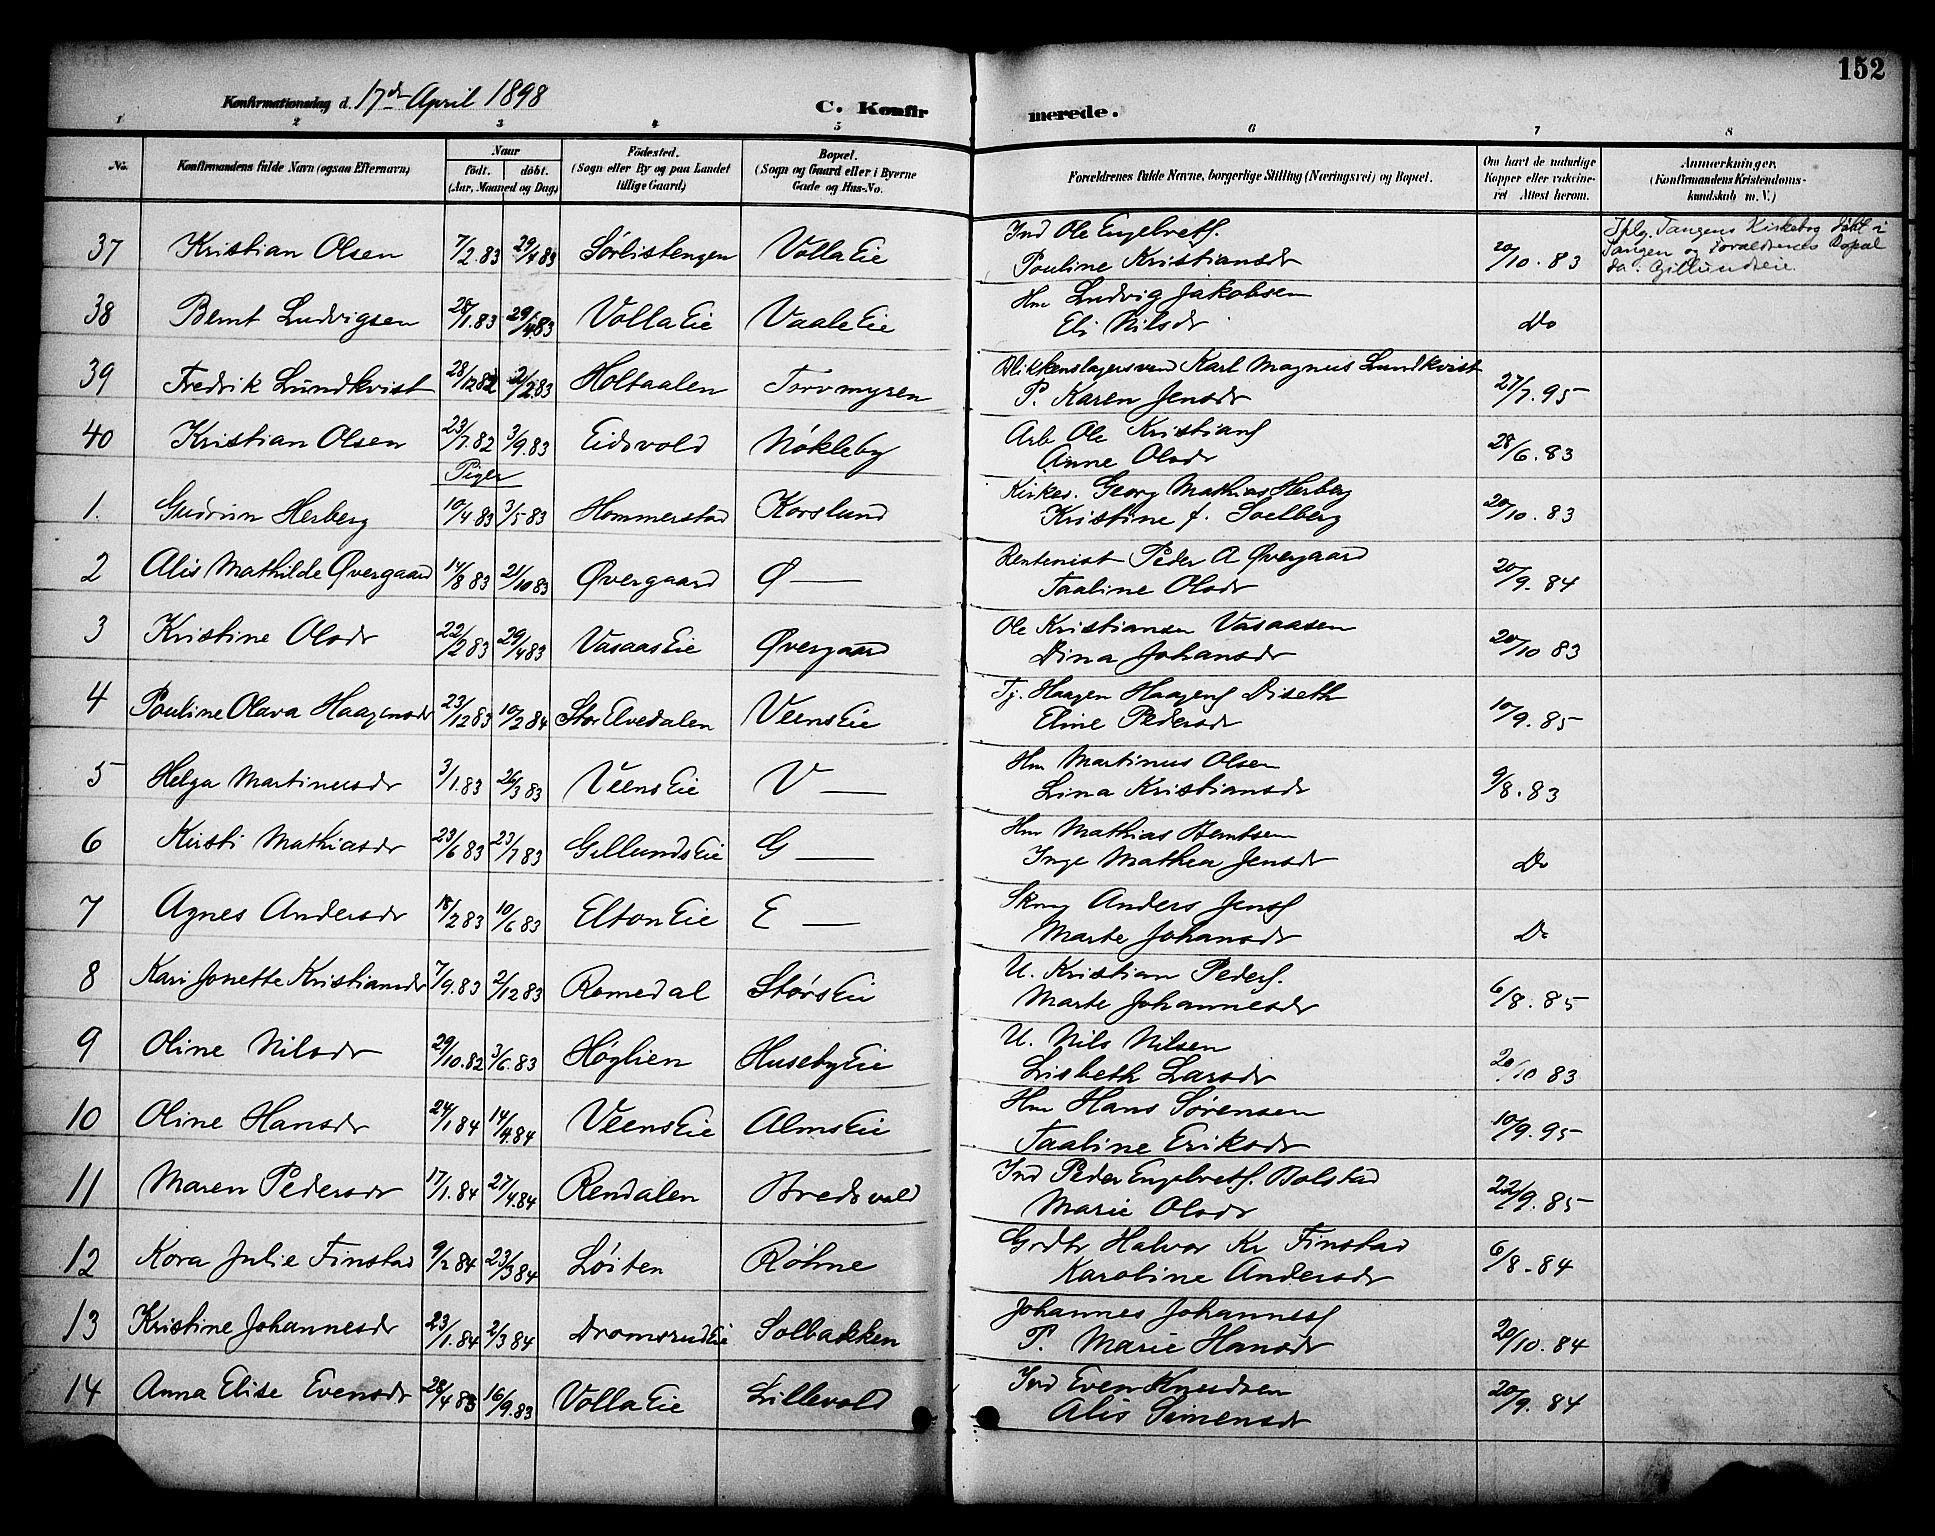 152
Konfirmationsdag d. 17de April 1898
C. Konfirmerede.
1 2 3 4 5 6 7 8
No. Konfirmandens fulde Navn (ogsaa Efternavn) Naar født. døbt. (Aar, Maaned og Dag) Födested. (Sogn eller By og paa Landet tillige Gaard) Bopæl. (Sogn og Gaard eller i Byerne Gade og Hus-No. Forældrenes fulde Navne, borgerlige Stilling (Næringsvei) og Bopæl. Om havt de naturlige Kopper eller vakcineret Attest herom. Anmærkninger. (Konfirmandens Kristendomskundskab m. V.)
37 Kristian Olsen 7/2.83 29/4 83 Sørlistengen Volla Eie Ind Ole Engebretf. 20/10.83 Iflg. Tangens Kirkebog døbt i
Pouline Kristiansdr Tangen og Forældrenes Bopæl
da: Gillundseie.
38 Bernt Ludvigsen 28/1.83 29/4.83 Volla Eie Vaale Eie Hm Ludvig Jakobsen Do
Eli Nilsdr
39 Fredrik Lundkvist 28/12.82 21/2.83 Holtaalen Torvmyren Blikkenslagersvend Karl Magnus Lundkvist 27/7.95
P. Karen Jensdr
40 Kristian Olsen 23/7.82 3/9.83 Eidsvold Nökleby Arb Ole Kristianf 28/6.83
Anne Olsdr
Piger
1. Gudrun Herberg 10/4.83 3/5 83 Hommerstad Korslund Kirkes. Georg Mathias Herberg 20/10.83
Kristine f. Soelberg
2 Alis Mathilde Øvergaard 14/8 83 21/10 83 Øvergaard Ø — Rentenist Peder A Øvergaard 20/9.84
Taaline Olsdr
3 Kristine Olsdr 22/2 83 29/4 83 Vasaas Eie Øvergaard Ole Kristiansen Vasaasen 20/10 83
Dina Johansdr
4 Pouline Olava Haagensdr 23/12 83 10/2 84 Stor Elvedalen Veens Eie Tj. Haagen Haagenf Diseth 10/9.85
Eline Pedersdr
5 Helga Martinusdr 3/1.83 26/3 83 Veens Eie V — Hm Martinus Olsen 9/8.83
Lina Kristiansdr
6 Kirsti Mathiasdr 23/6 83 23/7 83 Gillunds Eie G — Hm Mathias Berntsen Do
Inge Mathea Jensdr
7 Agnes Andersdr 18/2 83 10/6 83 Elton Eie E — Skrœ Anders Jensf Do
Marte Johansdr
8 Kari Jonette Kristiansdr 7/9.83 2/12 83 Romedal Störs Eie U. Kristian Pederf. 6/8.85
Marte Johannesdr
9 Oline Nilsdr 29/10.82 3/6.83 Höglien Huseby Eie U. Nils Nilsen 20/10 83
Lisbeth Larsdr
10 Oline Hansdr 24/1 84 14/4.84 Veens Eie Alms Eie Hm Hans Sørensen 10/9.95
Taaline Eriksdr
11 Maren Pedersdr 17/1.84 27/4.84 Rendalen Bredsvold Ind Peder Engebretf. Bolstad 22/9.85
Marie Olsdr
12 Kora Julie Finstad 9/2 84 23/3 84 Löiten Röhne Grdbr Halvor Kr Finstad 6/8-84
Karoline Andersdr
13 Kristine Johannesdr 23/1.84 2/3 84 Dromsrud Eie Solbakken Johannes Johannesf 20/10.84
P. Marie Hansdr
14 Anna Elise Evensdr 28/4 83 16/9.83 Volla Eie Lillevold Ind Even Knudsen 20/9.84
Alis Simensdr